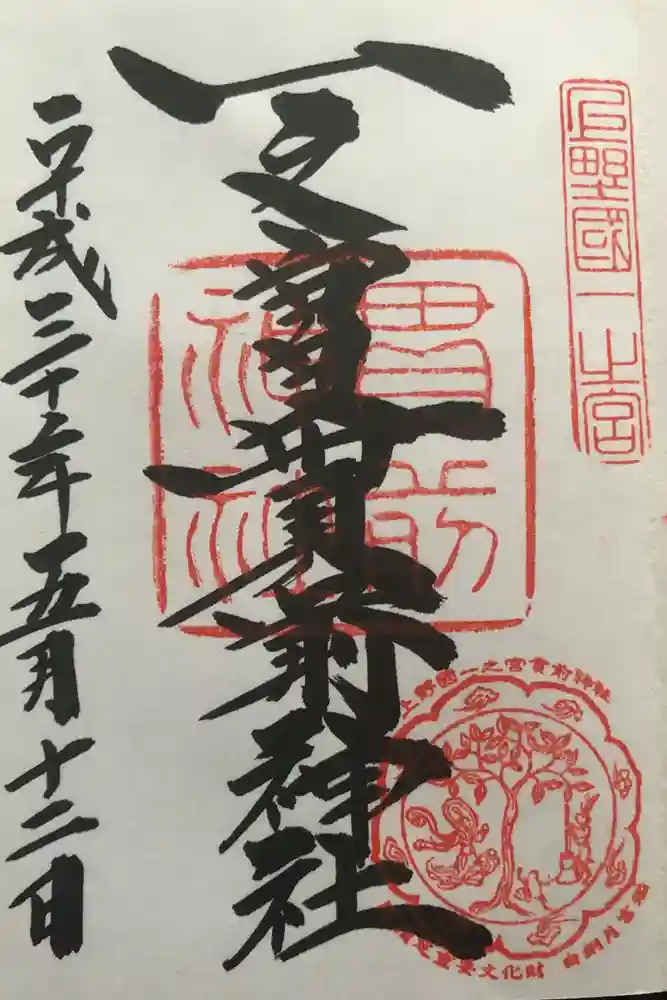 上野國一之宮
一之宮貫前神社
貫前神社
平成三十年五月十二日
上野国一之宮貫前神社
重要文化財 白銅月宮鑑